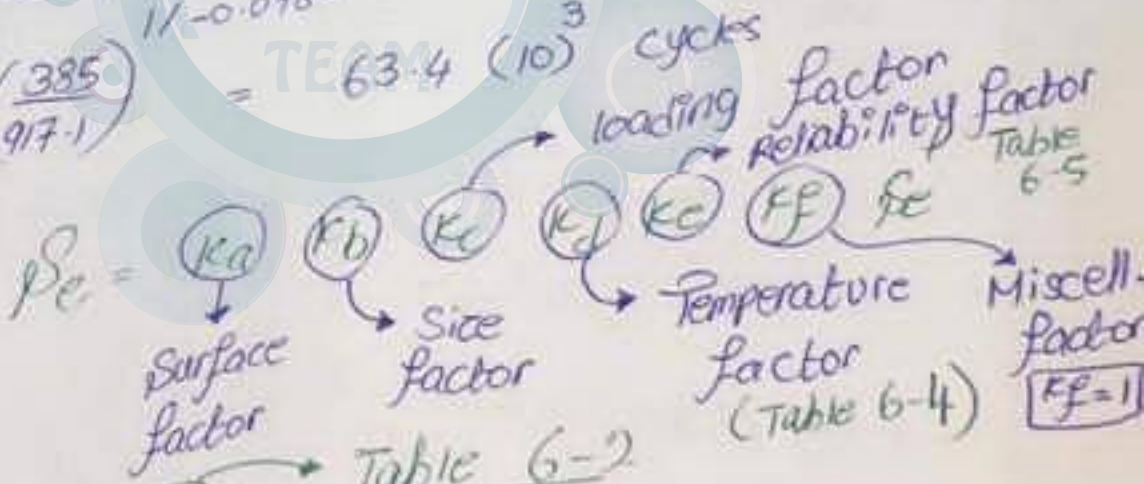 1/-0.0
TEAM
(385/917.1) = 63.4 (10)³ cycles
loading factor
Reliability factor
Table
6-5
Se = Ka Kb Kc Kd Ke Kf Se
Surface
factor
Size
factor
Temperature
factor
(Table 6-4)
Miscell.
factor
Kf=1
Table 6-2